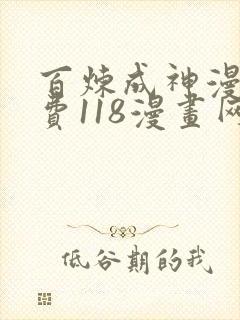 百炼成神漫
费118漫畫网
低谷期的我